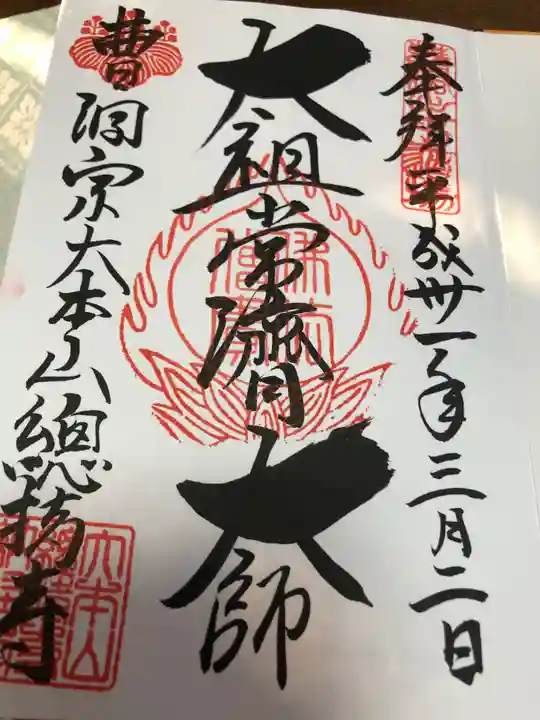 奉拜平成卅一年三月二日
太祖常濟大師
曹洞宗大本山總持寺